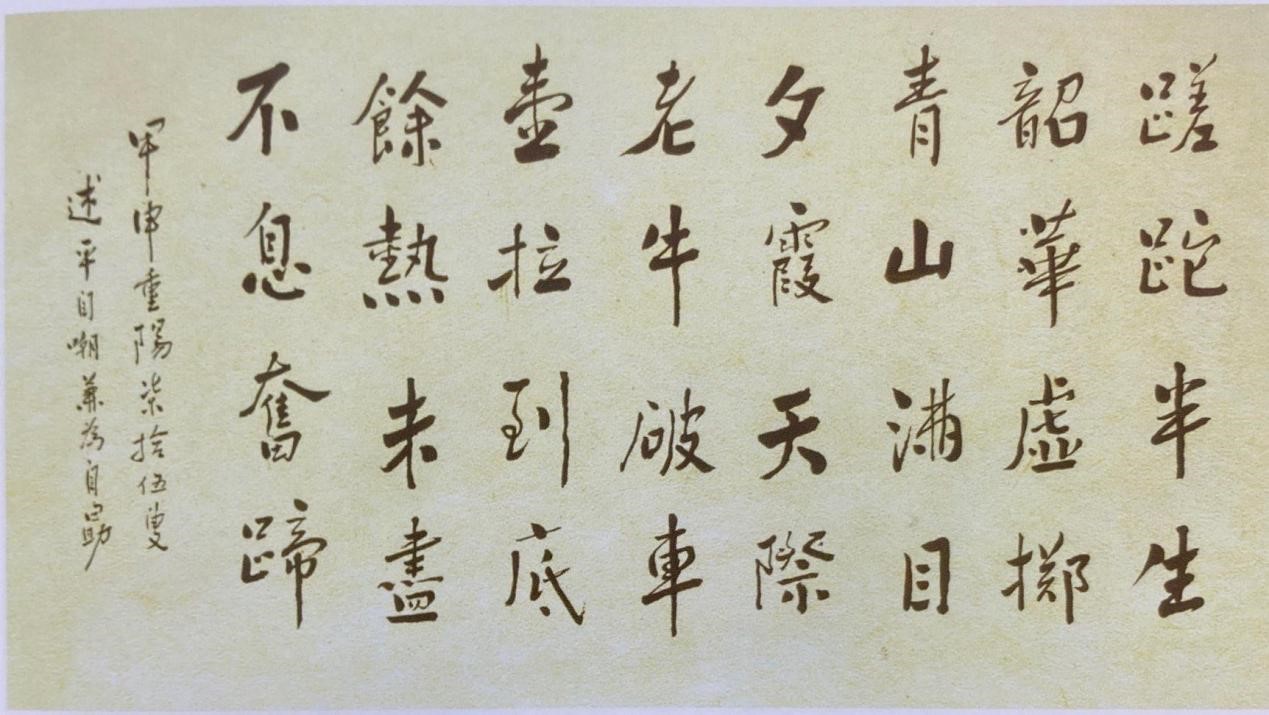 蹉跎半生
韶華虛掷
青山满目
夕霞天際
老牛破車
壹拉到底
餘熱未盡
不息奮蹄
甲申重陽柒拾伍叟
述平自嘲兼為自勗